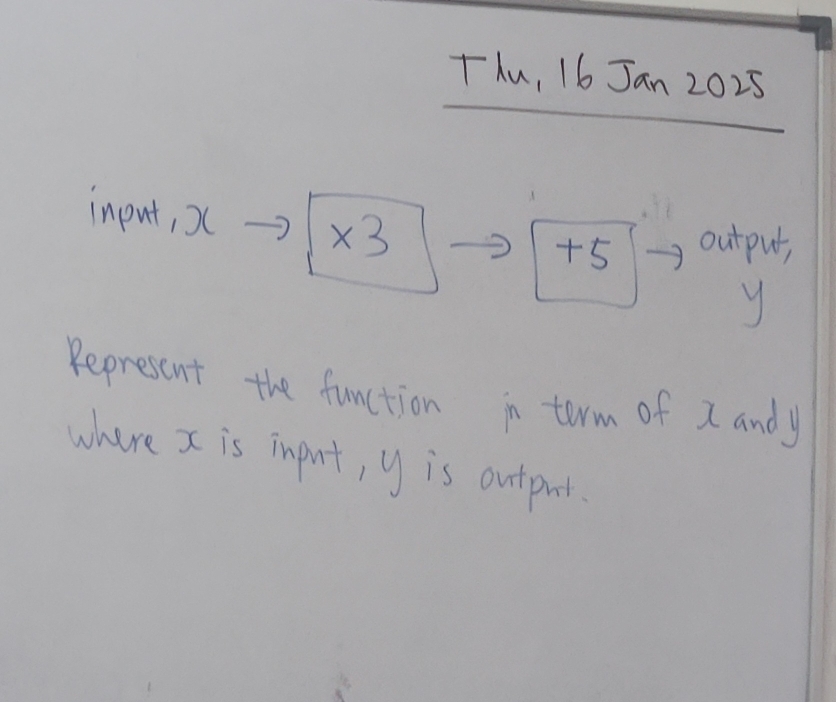 Thu, 16 Jan 2025
input, x → ×3 → +5 → output,
y
Represent the function in term of x and y
where x is input, y is output.